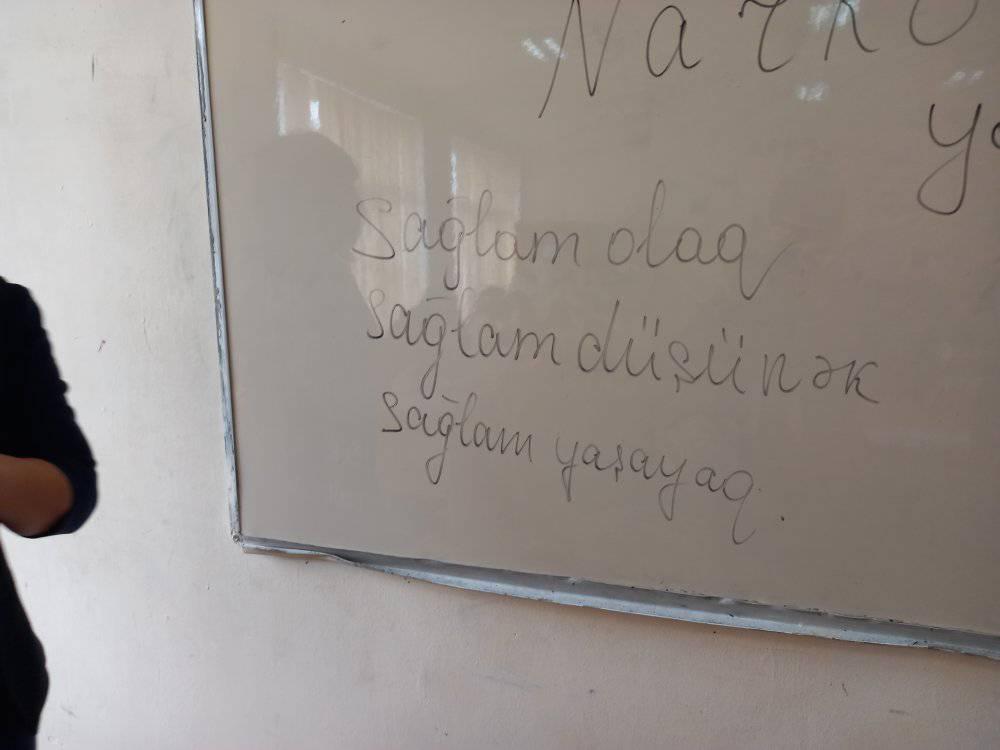 Sağlam olaq
Sağlam düşünək
Sağlam yaşayaq.